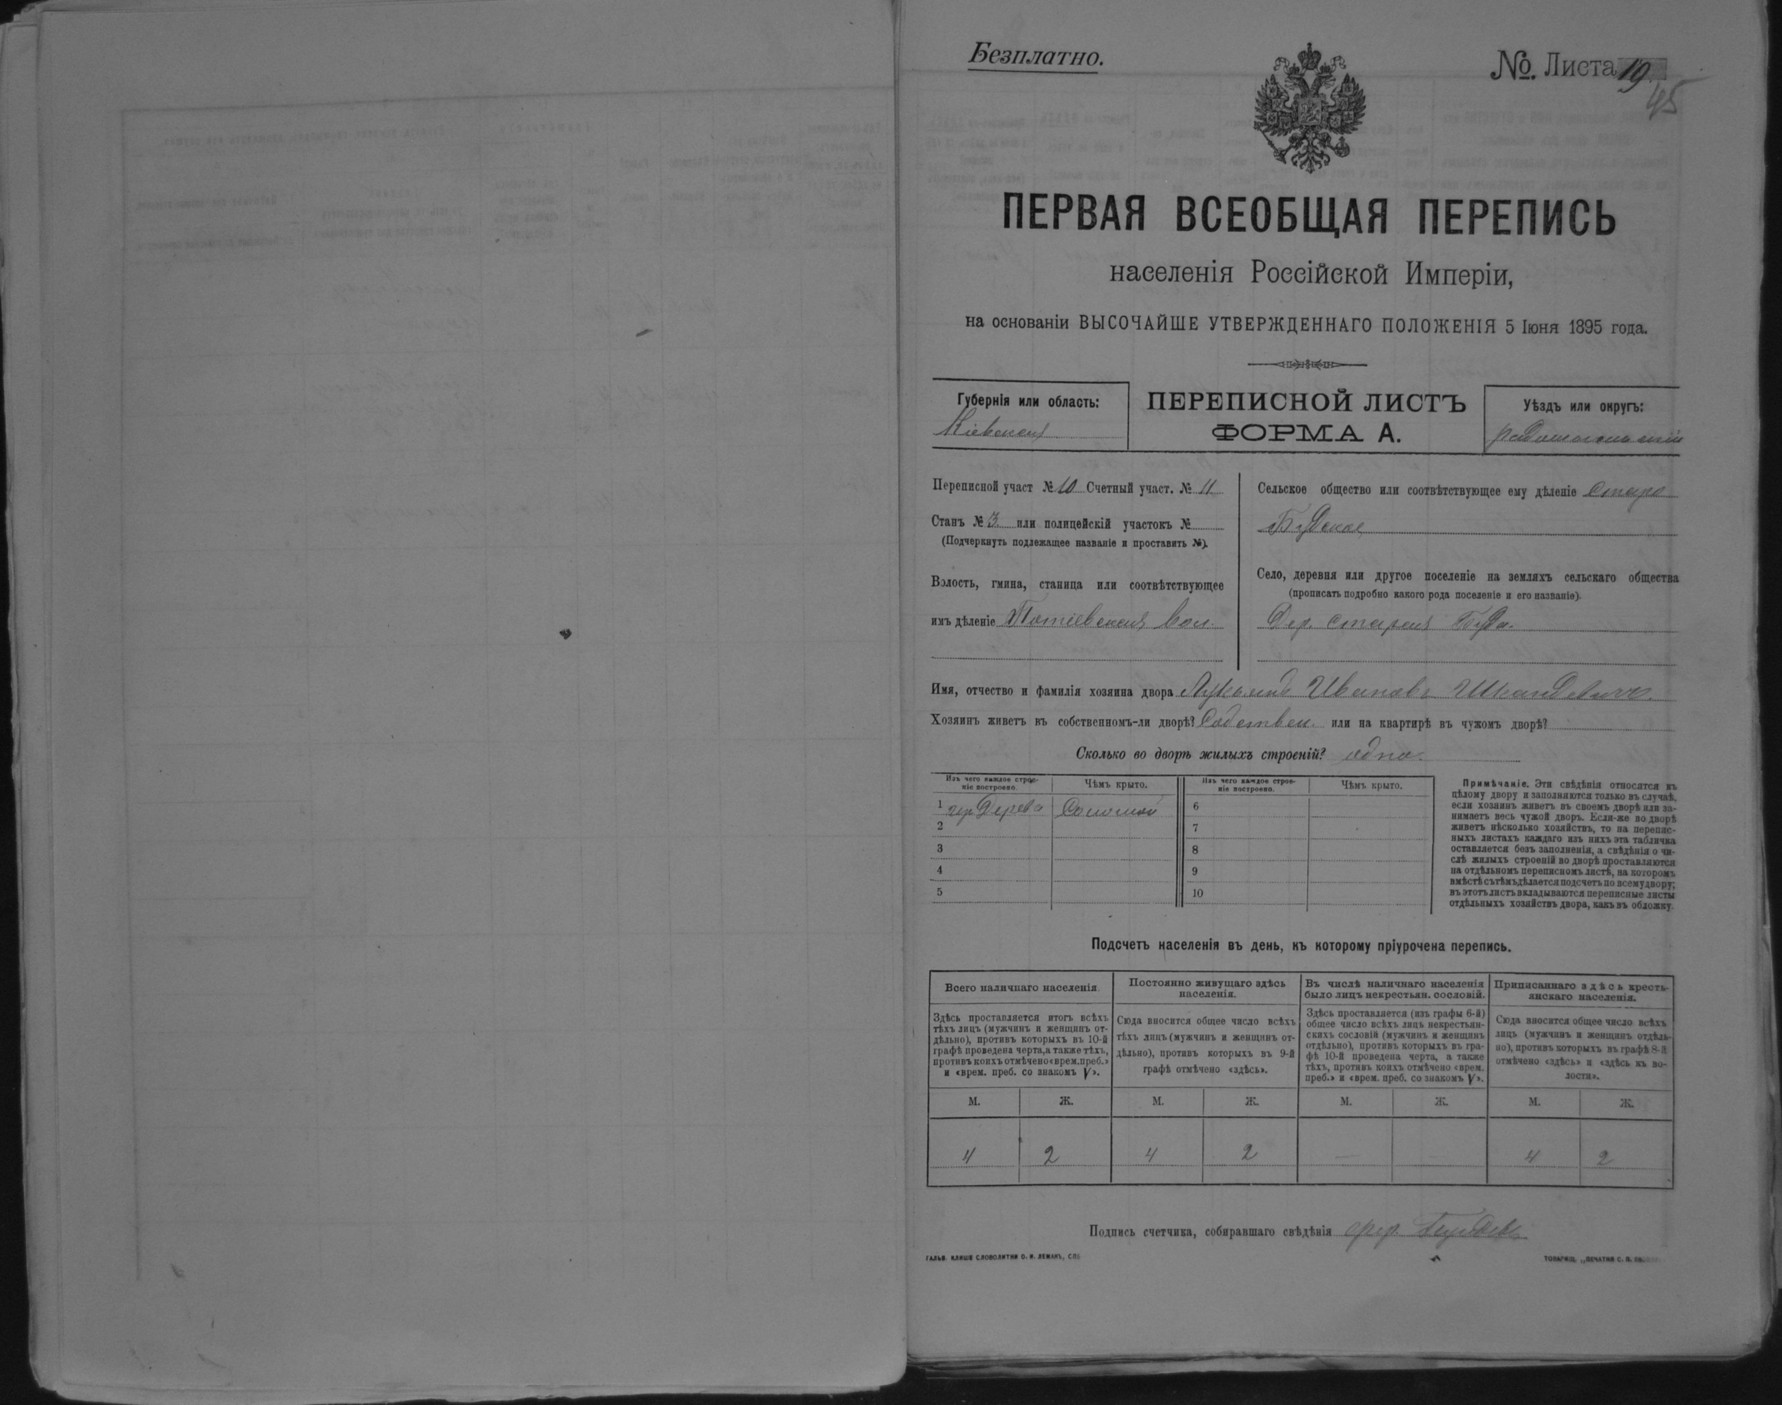 Безплатно.
№. Листа 19
45
ПЕРВАЯ ВСЕОБЩАЯ ПЕРЕПИСЬ
населенія Россійской Имперіи,
на основаніи ВЫСОЧАЙШЕ УТВЕРЖДЕННАГО ПОЛОЖЕНІЯ 5 Іюня 1895 года.
Губернія или область:
Кіевская
ПЕРЕПИСНОЙ ЛИСТЪ
ФОРМА А.
Уѣздъ или округъ:
Переписной участ № 10 Счетный участ. № 11
Станъ № 3 или полицейскій участокъ №
(Подчеркнуть подлежащее названіе и проставить №).
Волость, гмина, станица или соотвѣтствующее
имъ дѣленіе Потіевская вол.
Сельское общество или соотвѣтствующее ему дѣленіе Старо
Будское
Село, деревня или другое поселеніе на земляхъ сельскаго общества
(прописать подробно какого рода поселеніе и его названіе).
Дер. Старая Буда.
Имя, отчество и фамилія хозяина двора Иванов
Хозяинъ живетъ въ собственномъ-ли дворѣ? Собствен. или на квартирѣ въ чужомъ дворѣ?
Сколько во дворѣ жилыхъ строеній? одно.
Изъ чего каждое строе-
ніе построено.
Чѣмъ крыто.
Изъ чего каждое строе-
ніе построено.
Чѣмъ крыто.
1 дерева Соломой
2
3
4
5
6
7
8
9
10
Примѣчаніе. Эти свѣдѣнія относятся къ
цѣлому двору и заполняются только въ случаѣ,
если хозяинъ живетъ въ своемъ дворѣ или за-
нимаетъ весь чужой дворъ. Если-же во дворѣ
живетъ нѣсколько хозяйствъ, то на перепис-
ныхъ листахъ каждаго изъ нихъ эта табличка
оставляется безъ заполненія, а свѣдѣнія о чи-
слѣ жилыхъ строеній во дворѣ проставляются
на отдѣльномъ переписномъ листѣ, на которомъ
вмѣстѣ съ тѣмъ дѣлается подсчетъ по всему двору;
въ этотъ листъ вкладываются переписные листы
отдѣльныхъ хозяйствъ двора, какъ въ обложку.
Подсчетъ населенія въ день, къ которому пріурочена перепись.
Всего наличнаго населенія.
Здѣсь проставляется итогъ всѣхъ
тѣхъ лицъ (мужчинъ и женщинъ от-
дѣльно), противъ которыхъ въ 10-й
графѣ проведена черта, а также тѣхъ,
противъ коихъ отмѣчено «врем. преб.»
и «врем. преб. со знакомъ V».
Постоянно живущаго здѣсь
населенія.
Сюда вносится общее число всѣхъ
тѣхъ лицъ (мужчинъ и женщинъ от-
дѣльно), противъ которыхъ въ 9-й
графѣ отмѣчено «здѣсь».
Въ числѣ наличнаго населенія
было лицъ некрестьян. сословій.
Здѣсь проставляется (изъ графы 6-й)
общее число всѣхъ лицъ некрестьян-
скихъ сословій (мужчинъ и женщинъ
отдѣльно), противъ которыхъ въ гра-
фѣ 10-й проведена черта, а также
тѣхъ, противъ коихъ отмѣчено «врем.
преб.» и «врем. преб. со знакомъ V».
Приписаннаго здѣсь кресть-
янскаго населенія.
Сюда вносится общее число всѣхъ
лицъ (мужчинъ и женщинъ отдѣль-
но), противъ которыхъ въ графѣ 8-й
отмѣчено «здѣсь» и «здѣсь къ во-
лости».
М. Ж. М. Ж. М. Ж. М. Ж.
4 2 4 2 — — 4 2
Подпись счетчика, собиравшаго свѣдѣнія
ГАЛЬВ. КЛИШЕ СЛОВОЛИТНИ О. И. ЛЕМАНЪ, СПБ
ТОВАРИЩ. „ПЕЧАТНЯ С. П.